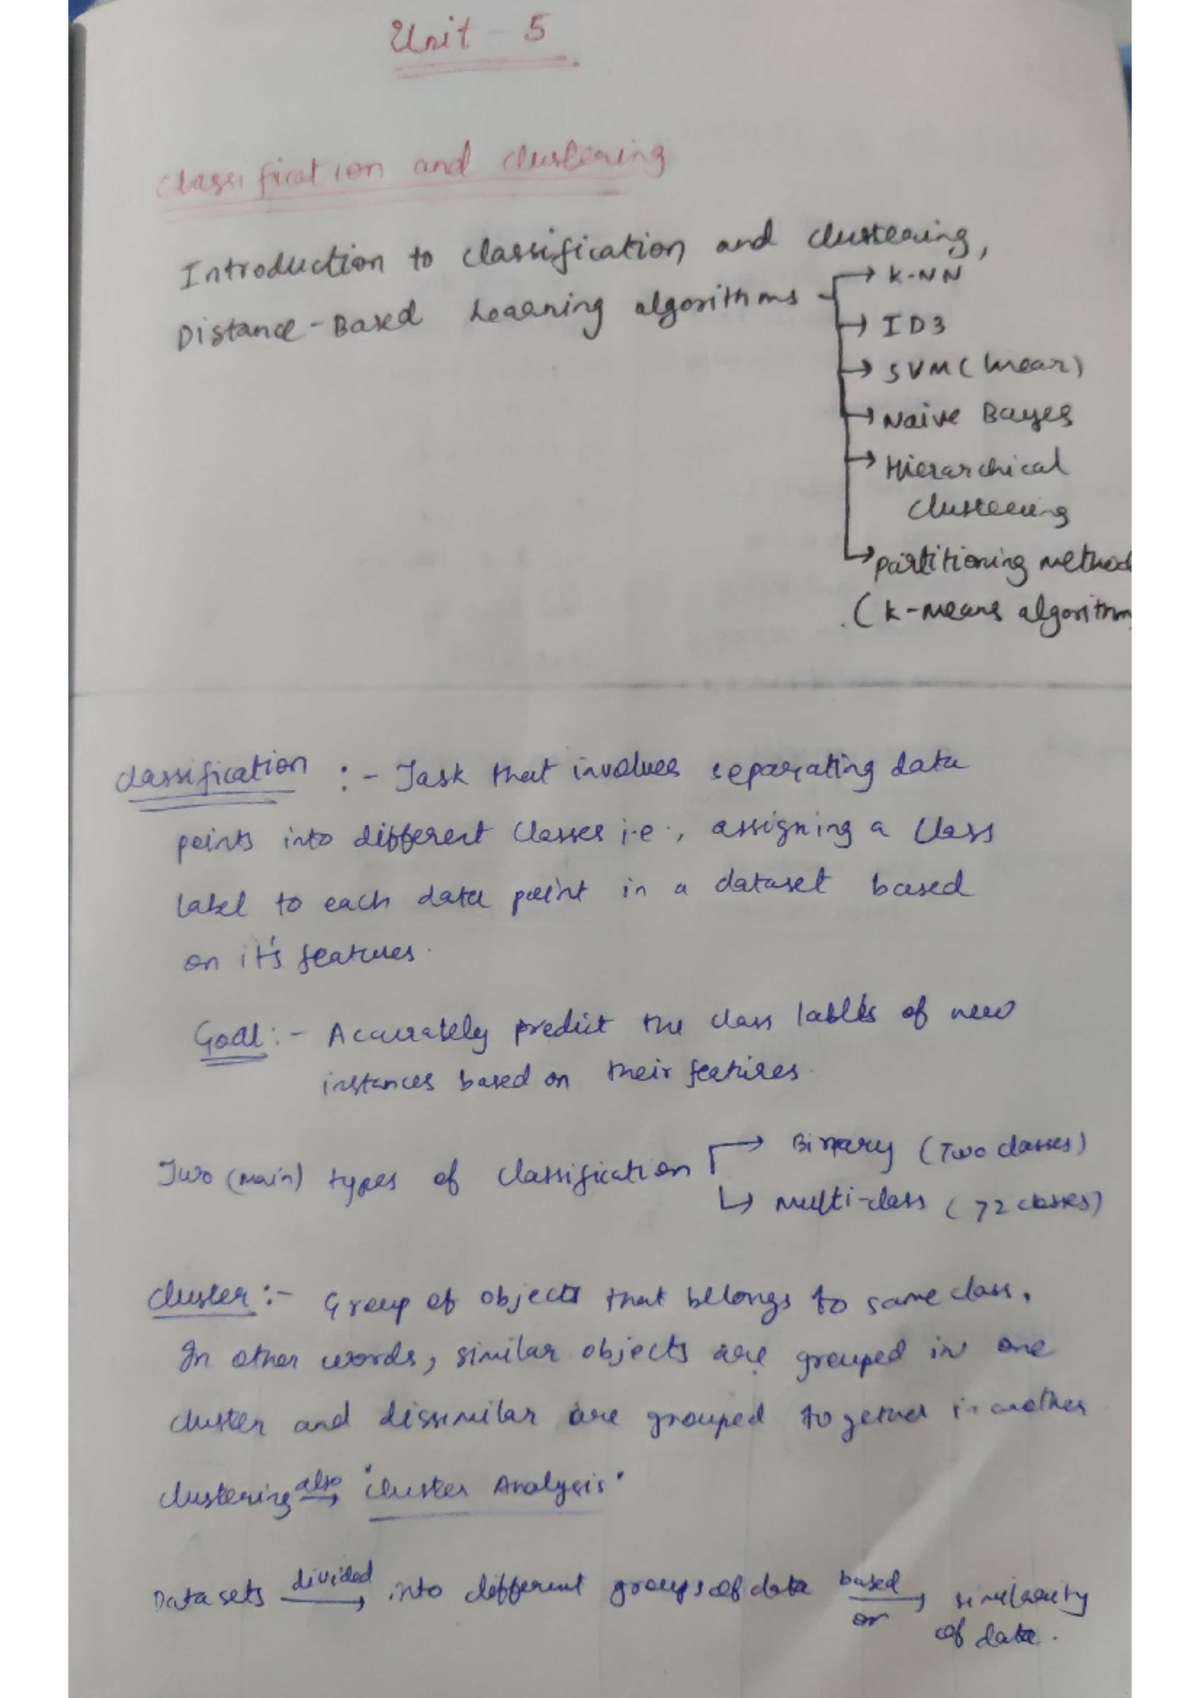 Unit - 5
Classification and clustering
Introduction to classification and clustering,
Distance-Based Learning algorithms → K-NN
→ ID3
→ SVM (linear)
→ Naive Bayes
→ Hierarchical
clustering
→ partitioning method
(k-means algorithm
classification :- Task that involves separating data
points into different classes i.e., assigning a class
label to each data point in a dataset based
on it's features.
Goal :- Accurately predict the class lables of new
instances based on their features.
Two (main) types of classification → Binary (Two classes)
→ multi-class (>2 classes)
cluster :- Group of objects that belongs to same class.
In other words, similar objects are grouped in one
cluster and dissimilar are grouped together in another
clustering also → 'cluster Analysis'
Data sets divided → into different groups of data based on → similarity
of data.